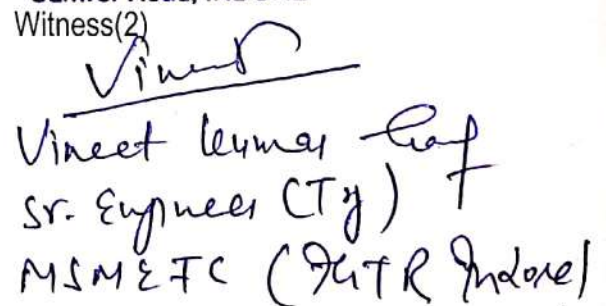 Witness(2)
Vineet
Vineet Kumar
Sr. Engineer (Tg)
MSMETC (IGTR Indore)